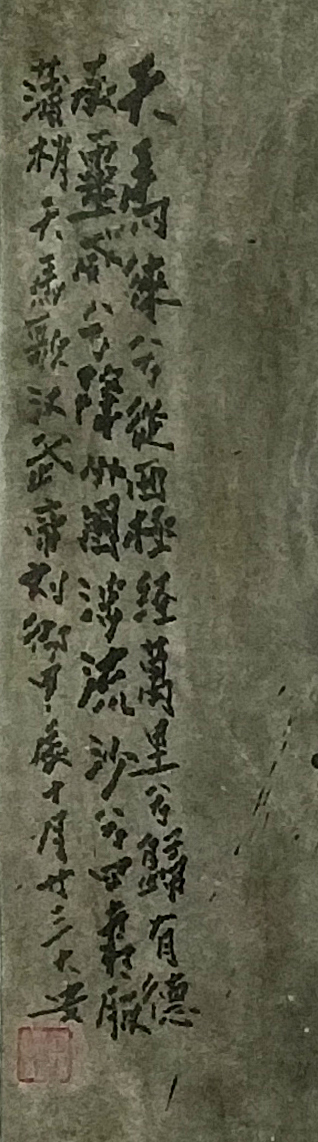 天馬徠兮從西極經萬里兮歸有德
承靈威兮障外國涉流沙兮四夷服
蒲梢天馬歌汉武帝刘彻甲辰十月廿三大贵